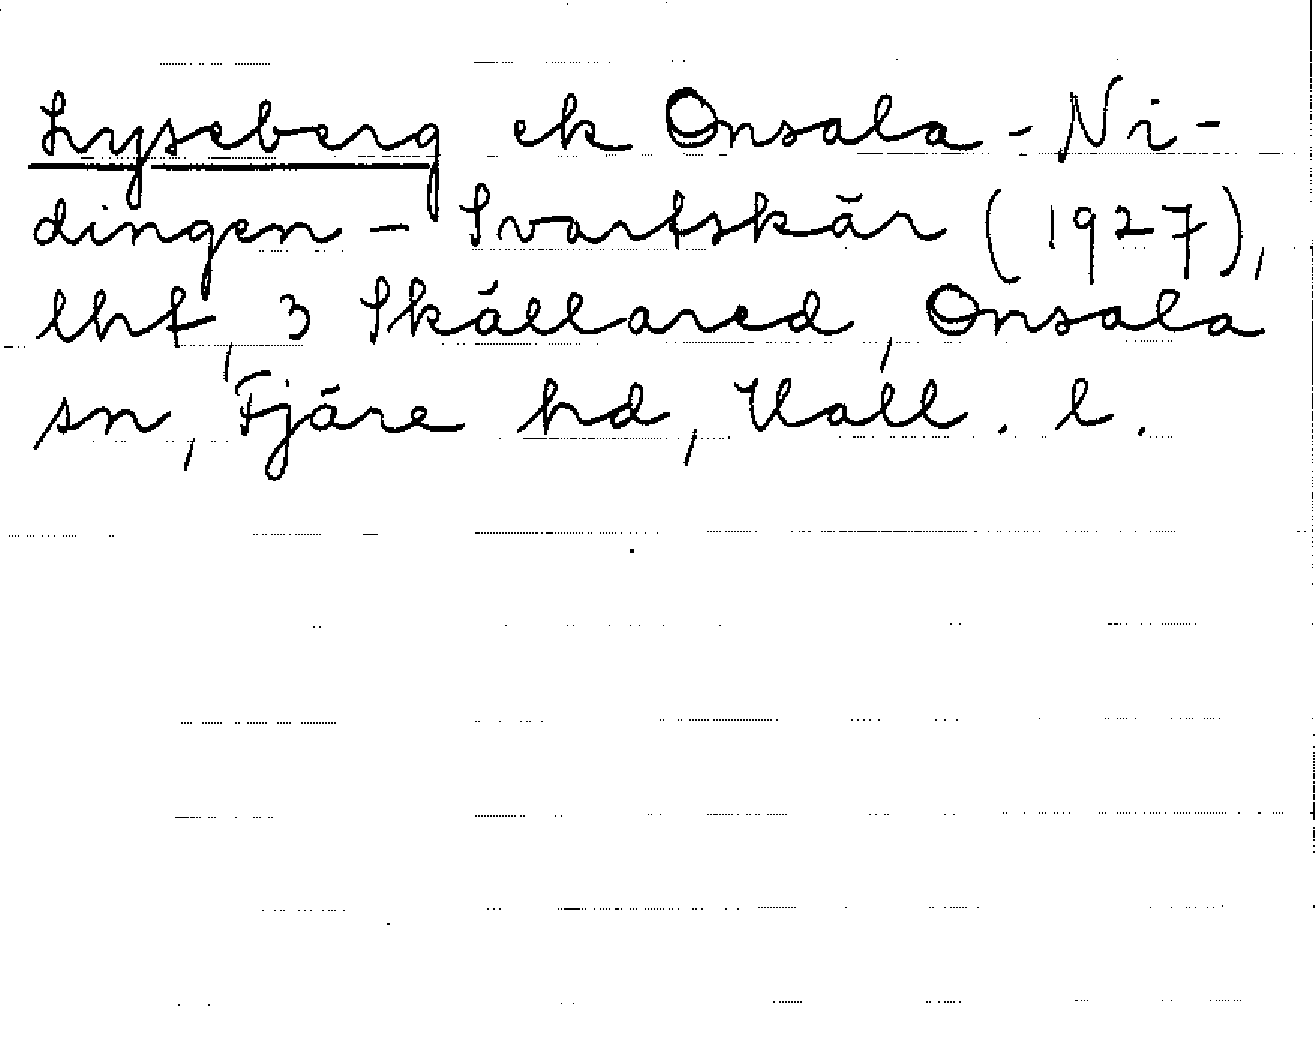 Lyseberg ek Onsala - Ni-
dingen - Svartskär (1927),
lht, 3 Skällared, Onsala
sn, Fjäre hd, Hall. l.